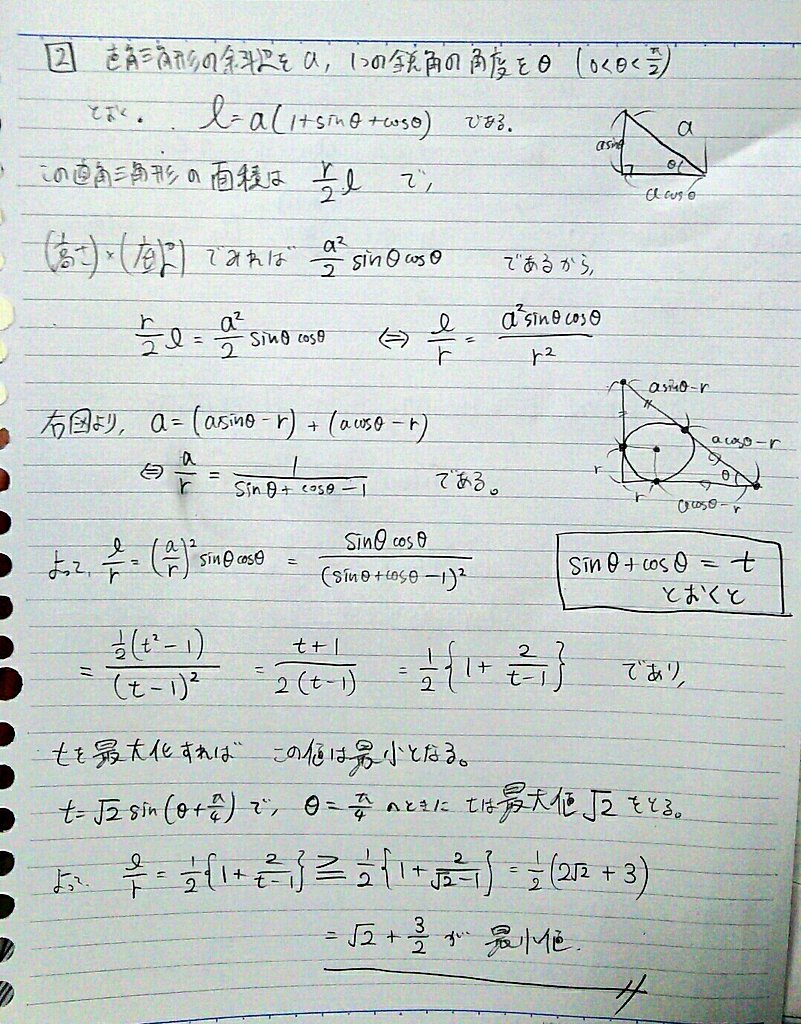 2 直角三角形の斜辺を a, 1つの鋭角の角度を θ (0<θ<π/2)
とおく. l=a(1+sinθ+cosθ) である.
a
asinθ
θ
acosθ
この直角三角形の面積は r/2 l で,
(高さ)×(底辺) でみれば a²/2 sinθcosθ であるから,
r/2 l = a²/2 sinθcosθ ⇔ l/r = a²sinθcosθ/r²
右図より, a=(asinθ-r)+(acosθ-r)
⇔ a/r = 1/(sinθ+cosθ-1) である。
asinθ-r
acosθ-r
r
θ
r
acosθ-r
よって, l/r = (a/r)² sinθcosθ = sinθcosθ/(sinθ+cosθ-1)²
sinθ+cosθ = t
とおくと
= ½(t²-1)/(t-1)² = (t+1)/2(t-1) = ½{1+2/(t-1)} であり,
tを最大化すれば この値は最小となる。
t=√2 sin(θ+π/4) で, θ=π/4 のときに tは最大値√2 をとる。
よって. l/r = ½{1+2/(t-1)} ≧ ½{1+2/(√2-1)} = ½(2√2+3)
= √2 + 3/2 が 最小値.